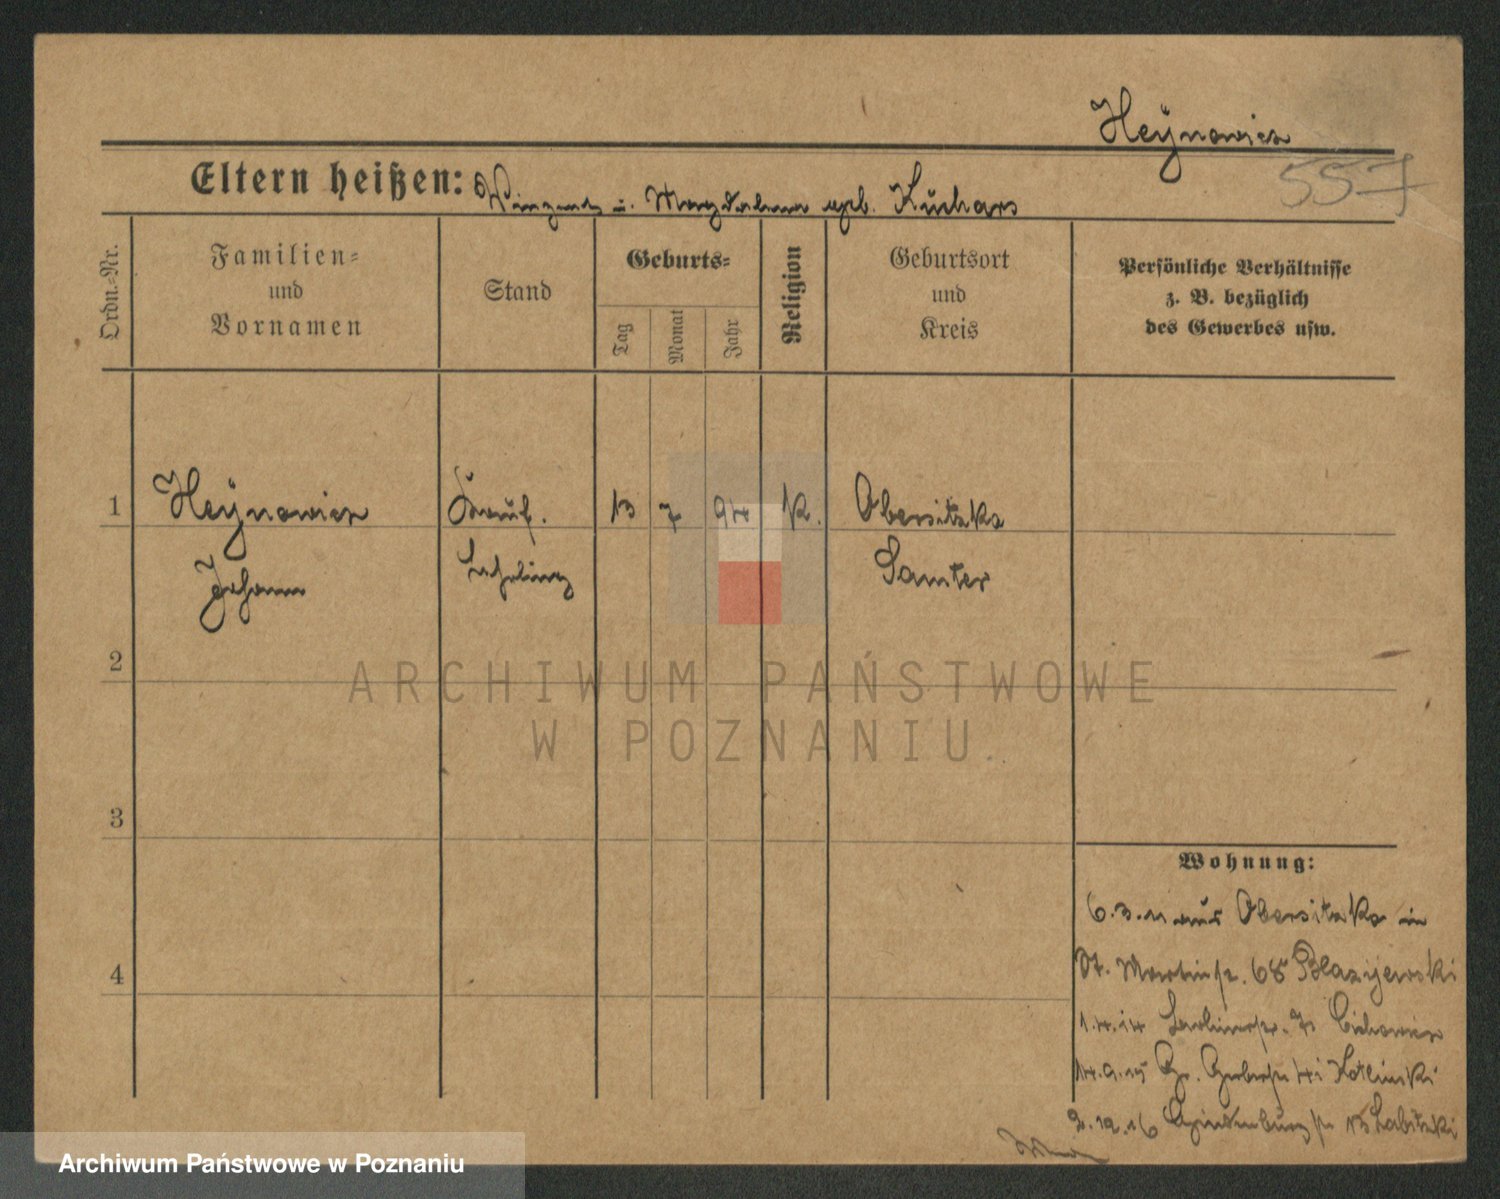 Heÿnowicz
557
Eltern heißen: Vinzent u. Magdalena geb. Kuchars
Ordn.-Nr.
Familien-
und
Vornamen
Stand
Geburts-
Tag
Monat
Jahr
Religion
Geburtsort
und
Kreis
Persönliche Verhältnisse
z. B. bezüglich
des Gewerbes usw.
1 Heÿnowicz Kaufm. 13 7 94 K. Obersitzko
Johann Lehrling Samter
2
3
4
Wohnung:
6.3.11 aus Obersitzko in
St. Martinstr. 68 Blazijewski
1.4.14 Berlinerstr. Cichowicz
14.9.15 Gr. Gerberstr. 41 Kotlinski
2.12.16 Hindenburgstr. Labitzki
ARCHIWUM PAŃSTWOWE
W POZNANIU.
Archiwum Państwowe w Poznaniu